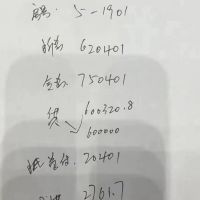 房号: 5-1901
620401
全款: 750401
贷 600320.8
600000
20401
2761.7